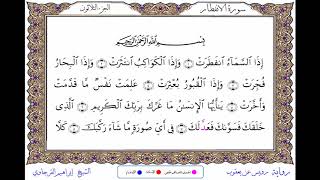 سورة الانفطار
الجزء الثلاثون
بسم الله الرحمن الرحيم
إِذَا السَّمَاءُ انفَطَرَتْ ۝ وَإِذَا الْكَوَاكِبُ انتَثَرَتْ ۝ وَإِذَا الْبِحَارُ
فُجِّرَتْ ۝ وَإِذَا الْقُبُورُ بُعْثِرَتْ ۝ عَلِمَتْ نَفْسٌ مَّا قَدَّمَتْ
وَأَخَّرَتْ ۝ يَٰأَيُّهَا الْإِنسَٰنُ مَا غَرَّكَ بِرَبِّكَ الْكَرِيمِ ۝ الَّذِي
خَلَقَكَ فَسَوَّىٰكَ فَعَدَّلَكَ ۝ فِي أَيِّ صُورَةٍ مَّا شَاءَ رَكَّبَكَ ۝ كَلَّا
رواية رويس عن يعقوب
الشيخ إبراهيم